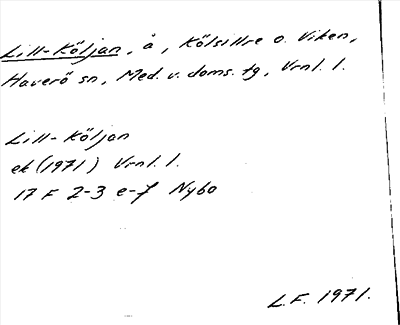 Lill-Köljan, å, Kölsillre o. Viken,
Haverö sn, Med. v. doms. tg, Vrnl. l.
Lill-Köljan
ek (1971) Vrnl. l.
17 F 2-3 e-f Nybo
L.F. 1971.